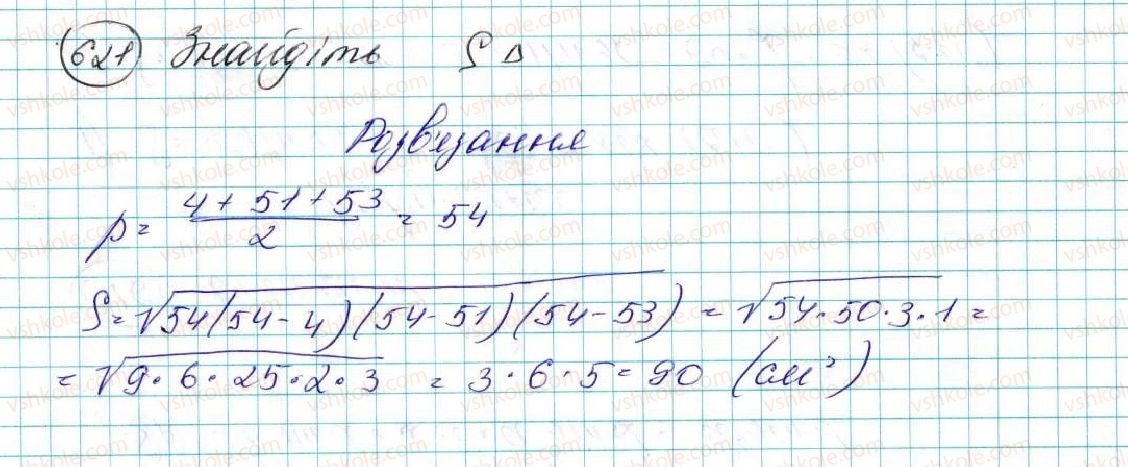 621 Знайдіть S Δ
Розв'язання
p = (4 + 51 + 53)/2 = 54
S = √(54(54 - 4)(54 - 51)(54 - 53)) = √(54 · 50 · 3 · 1) =
= √(9 · 6 · 25 · 2 · 3) = 3 · 6 · 5 = 90 (см²)